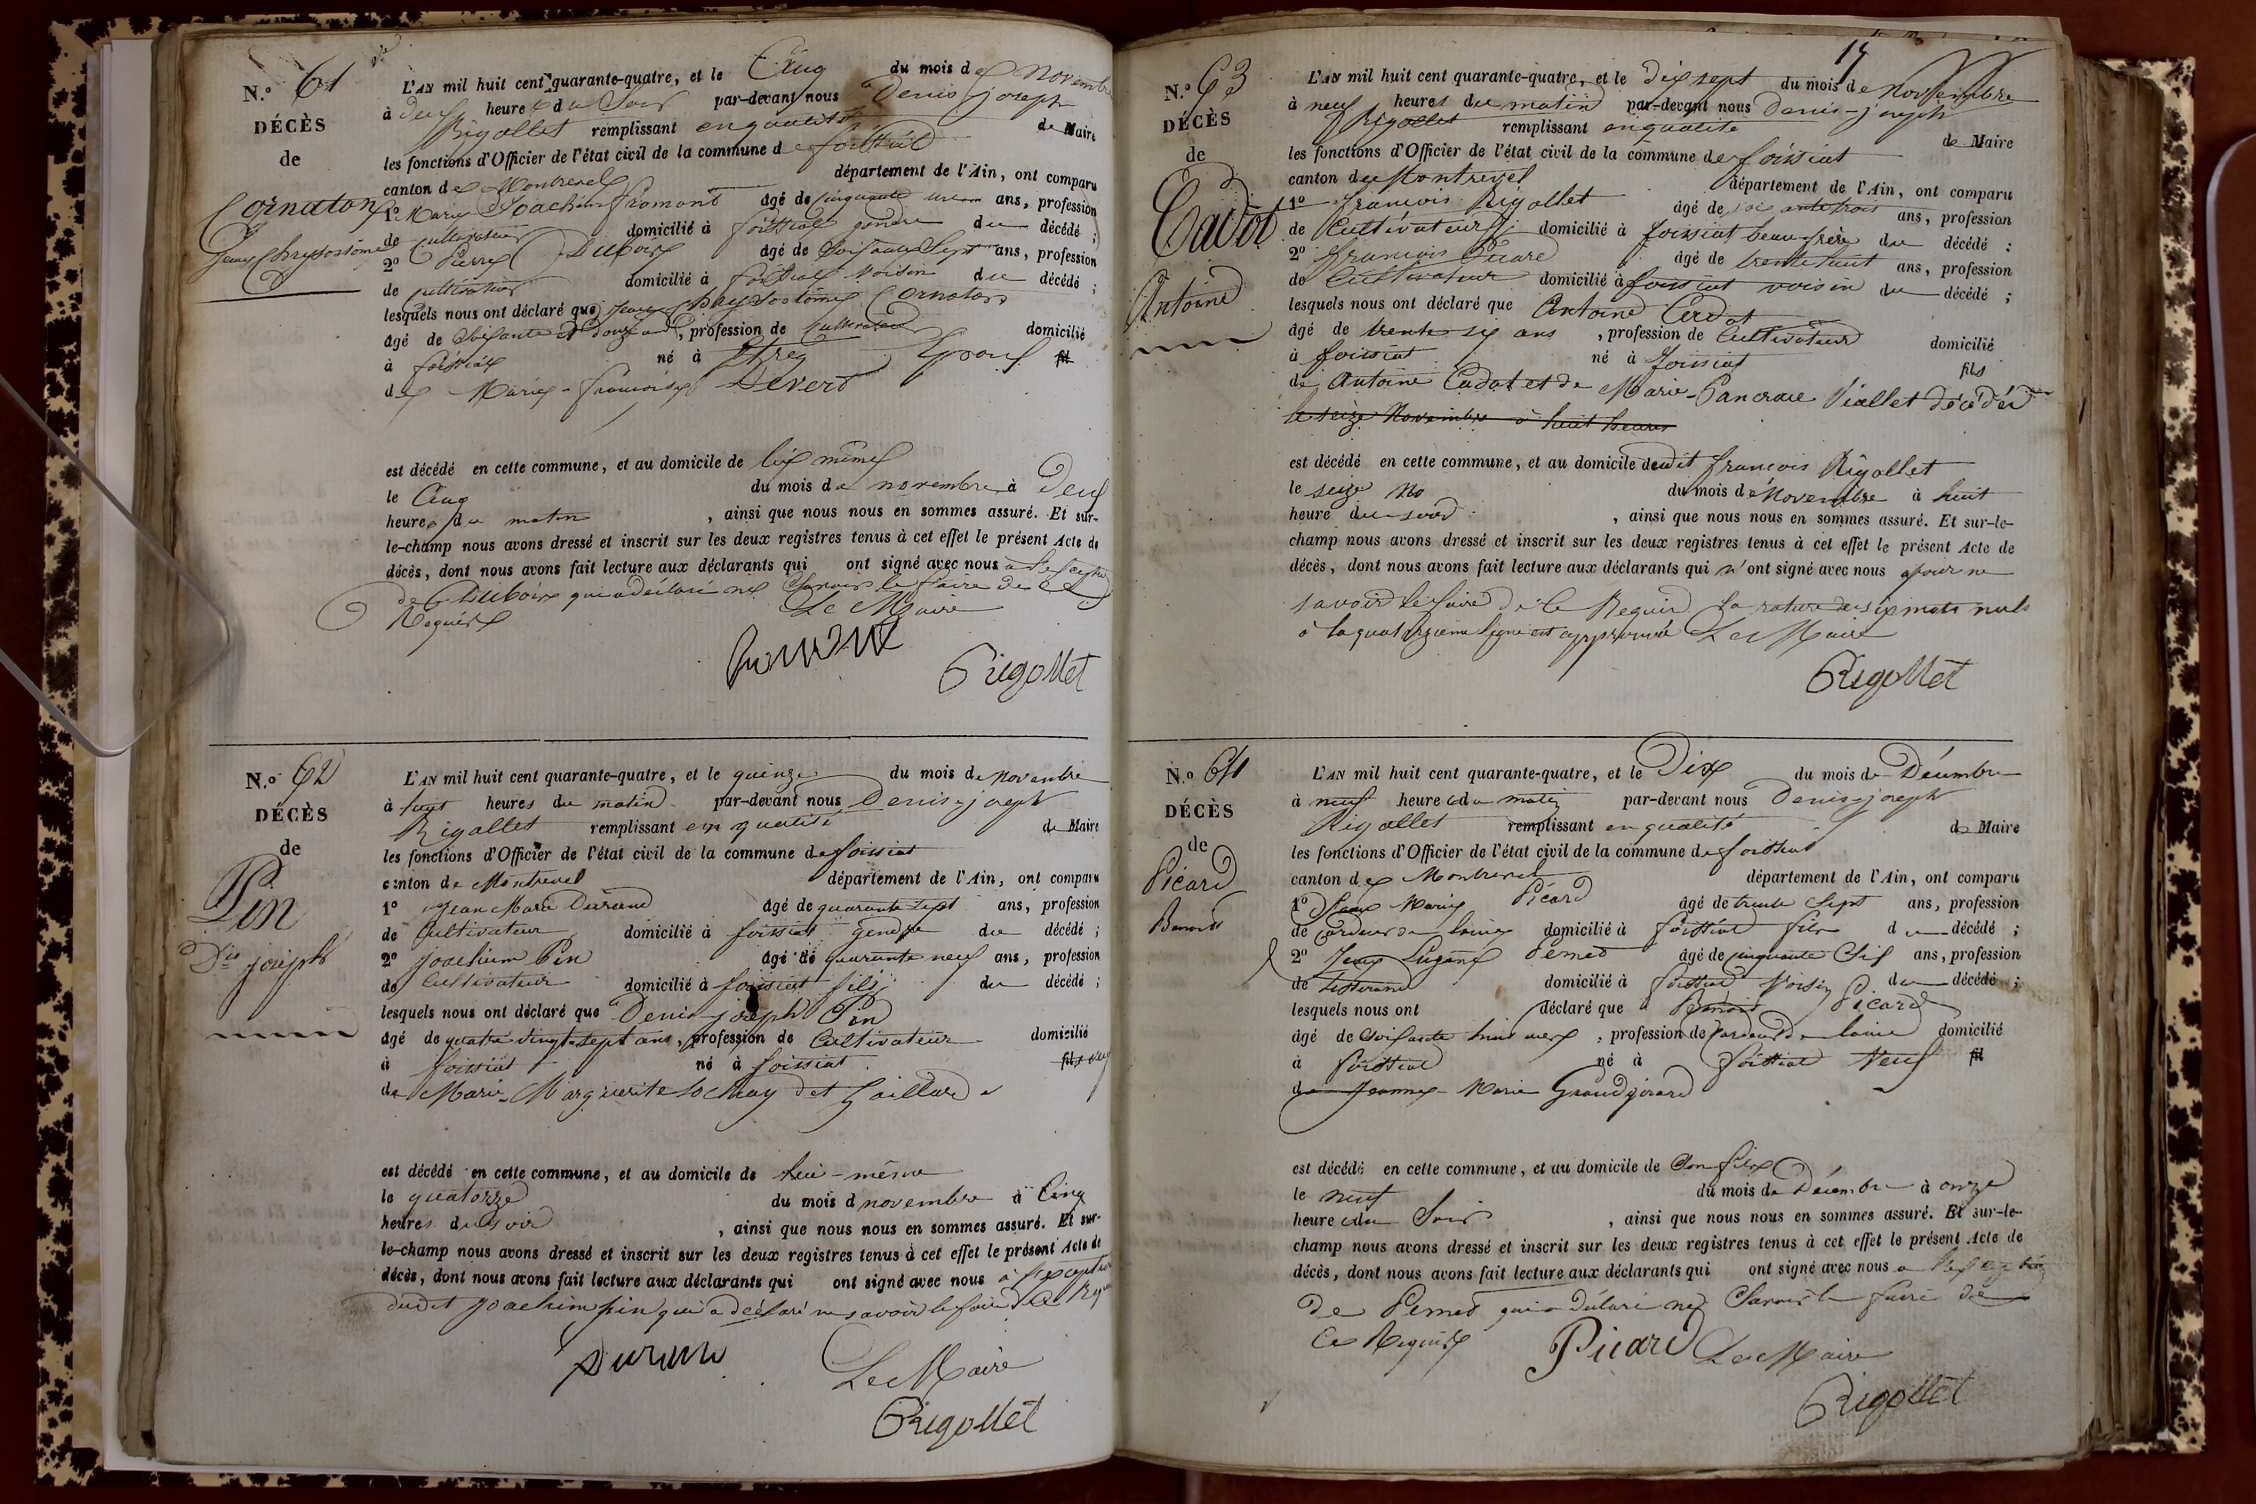 N.° 61
DÉCÈS
de
Cornaton
Jean Chrysostôme
L'AN mil huit cent quarante-quatre, et le Cinq du mois de Novembre
à deux heures du Soir par-devant nous Denis joseph
Rigollet remplissant en qualité de Maire
les fonctions d'Officier de l'état civil de la commune de foissiat
canton de Montrevel département de l'Ain, ont comparu
1° Marie Joachim fromont âgé de cinquante un ans, profession
de cultivateur domicilié à foissiat gendre du décédé ;
2° Pierre Dubois âgé de soixante Sept ans, profession
de cultivateur domicilié à foissiat voisin du décédé ;
lesquels nous ont déclaré que Jean Chrysostôme Cornaton
âgé de soixante et douze ans, profession de cultivateur domicilié
à foissiat né à Etrez Epoux fil
de Marie-françoise Devert
est décédé en cette commune, et au domicile de lui même
le Cinq du mois de novembre à Deux
heures du matin , ainsi que nous nous en sommes assuré. Et sur-
le-champ nous avons dressé et inscrit sur les deux registres tenus à cet effet le présent Acte de
décès, dont nous avons fait lecture aux déclarants qui ont signé avec nous à l'exception
de Dubois qui a déclaré ne Savoir le faire de ce
Requis Le Maire
Rigollet
N.° 62
DÉCÈS
de
Pin
Dis joseph
L'AN mil huit cent quarante-quatre, et le quinze du mois de novembre
à heures du matin par-devant nous Denis-joseph
Rigollet remplissant en qualité de Maire
les fonctions d'Officier de l'état civil de la commune de foissiat
canton de Montrevel département de l'Ain, ont comparu
1° Jean Marie Durand âgé de quarante sept ans, profession
de Cultivateur domicilié à foissiat gendre du décédé ;
2° joachim Pin âgé de quarante neuf ans, profession
de Cultivateur domicilié à foissiat fils du décédé ;
lesquels nous ont déclaré que Denis joseph Pin
âgé de quatre vingt sept ans, profession de Cultivateur domicilié
à foissiat né à foissiat fils veuf
de Marie-Marguerite Lochay dit Gaillard
est décédé en cette commune, et au domicile de lui-même
le quatorze du mois d novembre à Cinq
heures du soir , ainsi que nous nous en sommes assuré. Et sur-
le-champ nous avons dressé et inscrit sur les deux registres tenus à cet effet le présent Acte de
décès, dont nous avons fait lecture aux déclarants qui ont signé avec nous à l'exception
dudit joachim pin qui a déclaré ne savoir le faire de ce Requis
Durand Le Maire
Rigollet
17
N.° 63
DÉCÈS
de
Cadot
Antoine
L'AN mil huit cent quarante-quatre, et le dix sept du mois de Novembre
à neuf heures du matin par-devant nous Denis-joseph
Rigollet remplissant en qualité de Maire
les fonctions d'Officier de l'état civil de la commune de foissiat
canton de Montrevel département de l'Ain, ont comparu
1° françois Rigollet âgé de ans, profession
de Cultivateur domicilié à foissiat beau-frère du décédé ;
2° françois Picard âgé de trente huit ans, profession
de Cultivateur domicilié à foissiat voisin du décédé ;
lesquels nous ont déclaré que Antoine Cadot
âgé de trente six ans , profession de Cultivateur domicilié
à foissiat né à foissiat fils
de Antoine Cadot et de Marie-Pancrace Viallet décédés
le seize Novembre à huit heures
est décédé en cette commune, et au domicile dudit françois Rigollet
le seize No du mois de Novembre à huit
heure du soir , ainsi que nous nous en sommes assuré. Et sur-le-
champ nous avons dressé et inscrit sur les deux registres tenus à cet effet le présent Acte de
décès, dont nous avons fait lecture aux déclarants qui n'ont signé avec nous pour ne
savoir le faire de ce Requis la rature de six mots nuls
à la quatorzieme ligne est approuvée Le Maire
Rigollet
N.° 64
DÉCÈS
de
Picard
Benoit
L'AN mil huit cent quarante-quatre, et le Dix du mois de Décembre
à neuf heures du matin par-devant nous Denis-joseph
Rigollet remplissant en qualité de Maire
les fonctions d'Officier de l'état civil de la commune de foissiat
canton de Montrevel département de l'Ain, ont comparu
1° Jean Marie Picard âgé de trente Sept ans, profession
de Cardeur de laine domicilié à foissiat fils du décédé ;
2° Jean Pemet âgé de cinquante Six ans, profession
de tisserand domicilié à foissiat voisin du décédé ;
lesquels nous ont déclaré que Benoit Picard
âgé de soixante , profession de Cardeur de laine domicilié
à foissiat né à foissiat Veuf fil
de Jeanne-Marie Grandgirard
est décédé en cette commune, et au domicile de Son fils
le neuf du mois de Décembre à onze
heures du Soir , ainsi que nous nous en sommes assuré. Et sur-le-
champ nous avons dressé et inscrit sur les deux registres tenus à cet effet le présent Acte de
décès, dont nous avons fait lecture aux déclarants qui ont signé avec nous à l'exception
de Pemet qui a déclaré ne Savoir le faire de
Ce Requis Picard Le Maire
Rigollet